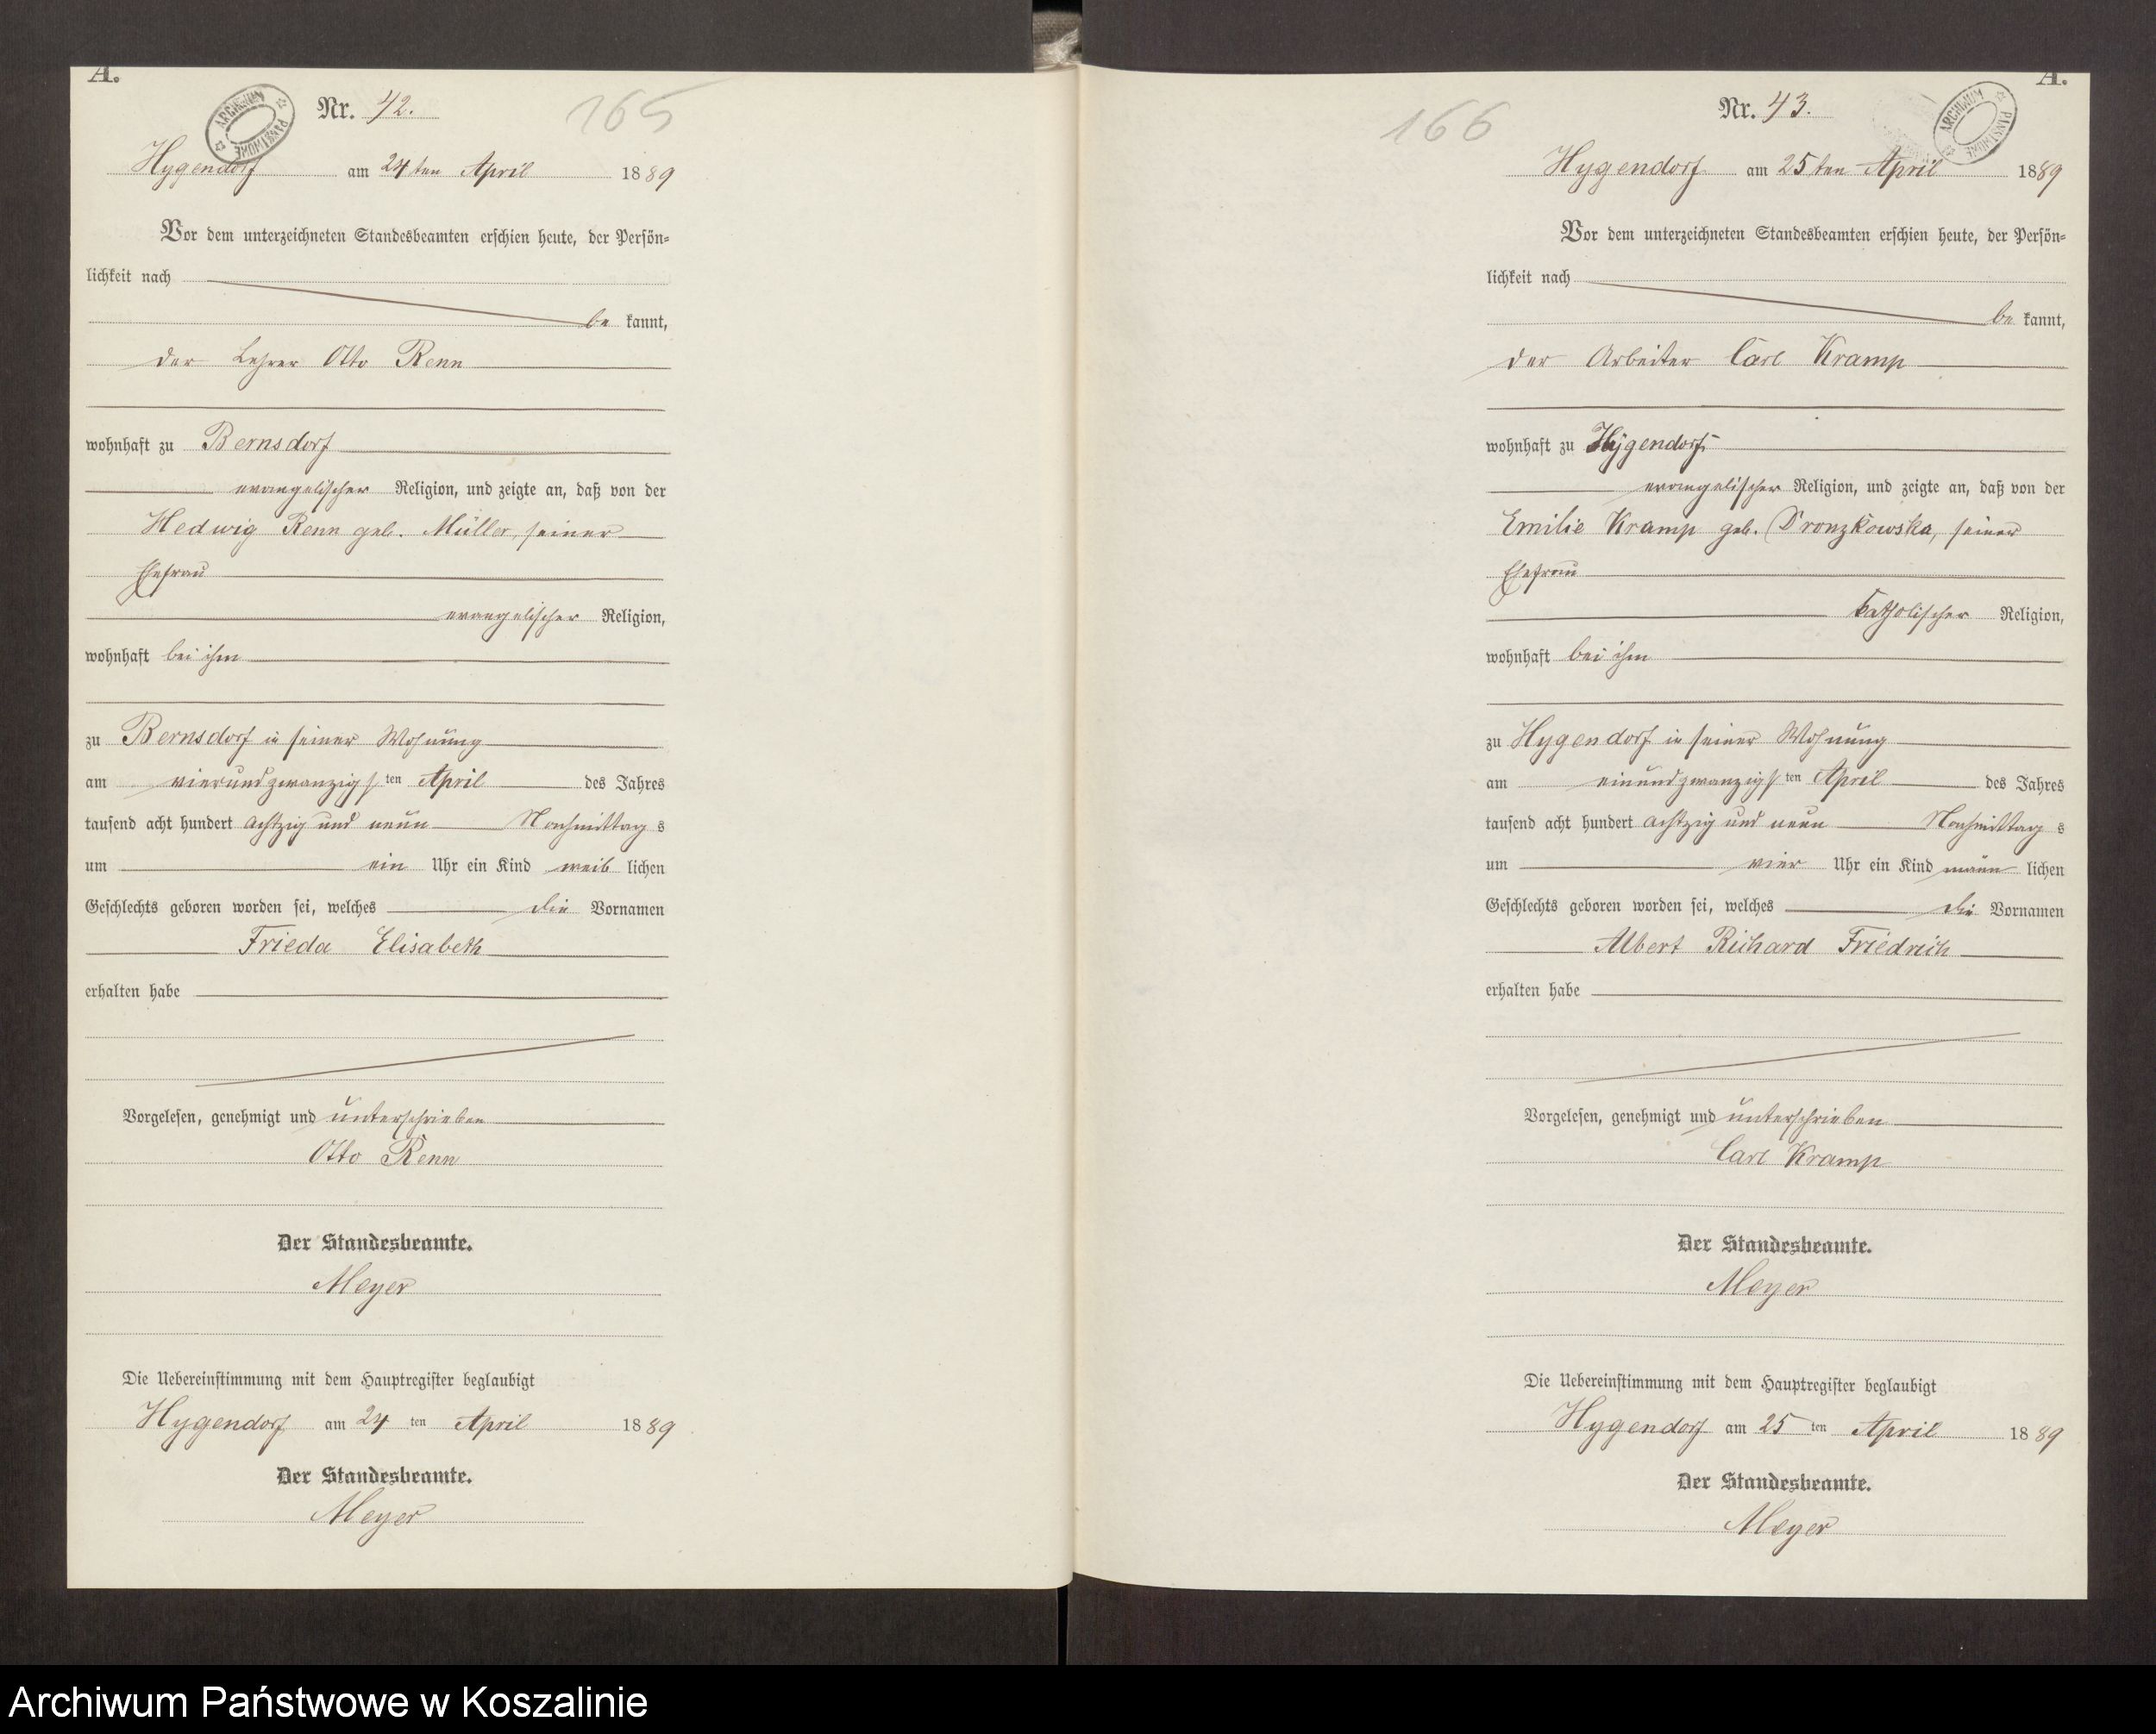 A.
ARCHIWUM PAŃSTWOWE
Nr. 42.
165
Hygendorf am 24ten April 1889
Vor dem unterzeichneten Standesbeamten erschien heute, der Persön-
lichkeit nach
be kannt,
der Lehrer Otto Renn
wohnhaft zu Bernsdorf
evangelischer Religion, und zeigte an, daß von der
Hedwig Renn geb. Müller, seiner
Ehefrau
evangelischer Religion,
wohnhaft bei ihm
zu Bernsdorf in seiner Wohnung
am vierundzwanzigsten April des Jahres
tausend acht hundert achtzig und neun Nachmittags
um ein Uhr ein Kind weiblichen
Geschlechts geboren worden sei, welches die Vornamen
Frieda Elisabeth
erhalten habe
Vorgelesen, genehmigt und unterschrieben
Otto Renn
Der Standesbeamte.
Meyer
Die Uebereinstimmung mit dem Hauptregister beglaubigt
Hygendorf am 24 ten April 1889
Der Standesbeamte.
Meyer
A.
ARCHIWUM PAŃSTWOWE
Nr. 43.
166
Hygendorf am 25ten April 1889
Vor dem unterzeichneten Standesbeamten erschien heute, der Persön-
lichkeit nach
be kannt,
der Arbeiter Carl Kramp
wohnhaft zu Hygendorf
evangelischer Religion, und zeigte an, daß von der
Emilie Kramp geb. Dronzkowska, seiner
Ehefrau
katholischer Religion,
wohnhaft bei ihm
zu Hygendorf in seiner Wohnung
am einundzwanzigsten April des Jahres
tausend acht hundert achtzig und neun Nachmittags
um vier Uhr ein Kind männlichen
Geschlechts geboren worden sei, welches die Vornamen
Albert Richard Friedrich
erhalten habe
Vorgelesen, genehmigt und unterschrieben
Carl Kramp
Der Standesbeamte.
Meyer
Die Uebereinstimmung mit dem Hauptregister beglaubigt
Hygendorf am 25 ten April 1889
Der Standesbeamte.
Meyer
Archiwum Państwowe w Koszalinie